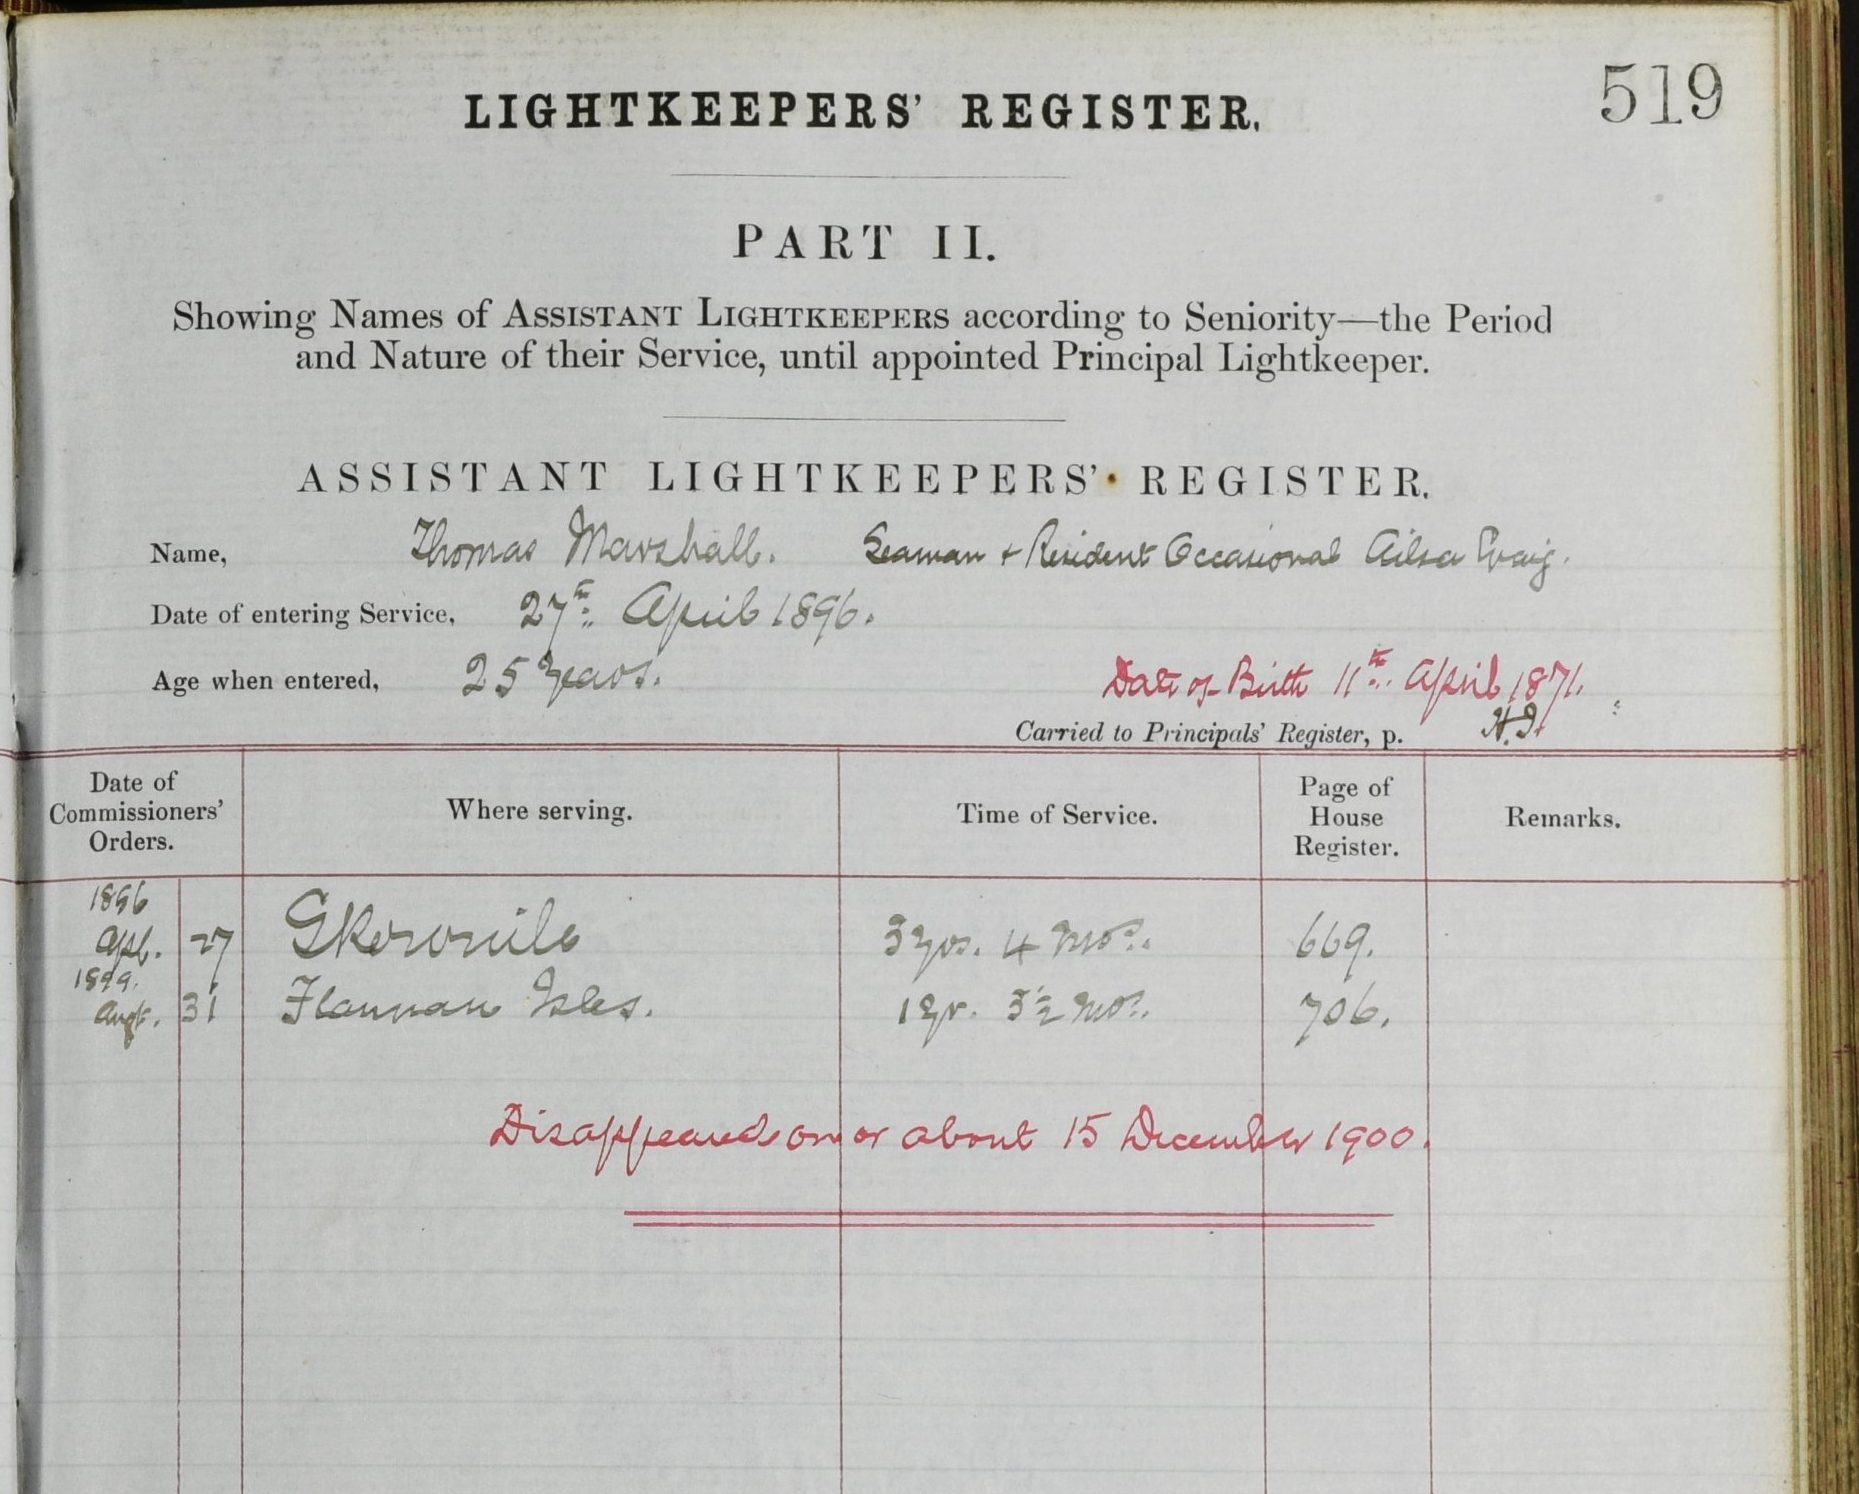 519
LIGHTKEEPERS' REGISTER.
PART II.
Showing Names of ASSISTANT LIGHTKEEPERS according to Seniority—the Period
and Nature of their Service, until appointed Principal Lightkeeper.
ASSISTANT LIGHTKEEPERS' REGISTER.
Name, Thomas Marshall. Seaman + Resident Occasional Ailsa Craig.
Date of entering Service, 27th April 1896.
Age when entered, 25 Years. Date of Birth 11th April 1871.
Carried to Principals' Register, p.
Date of Commissioners' Orders. Where serving. Time of Service. Page of House Register. Remarks.
1896
Apl. 27 Skerryvore 3 yrs. 4 Mos. 669.
1899.
Augt. 31 Flannan Isles. 1 yr. 3½ Mos. 706.
Disappeared on or about 15 December 1900.